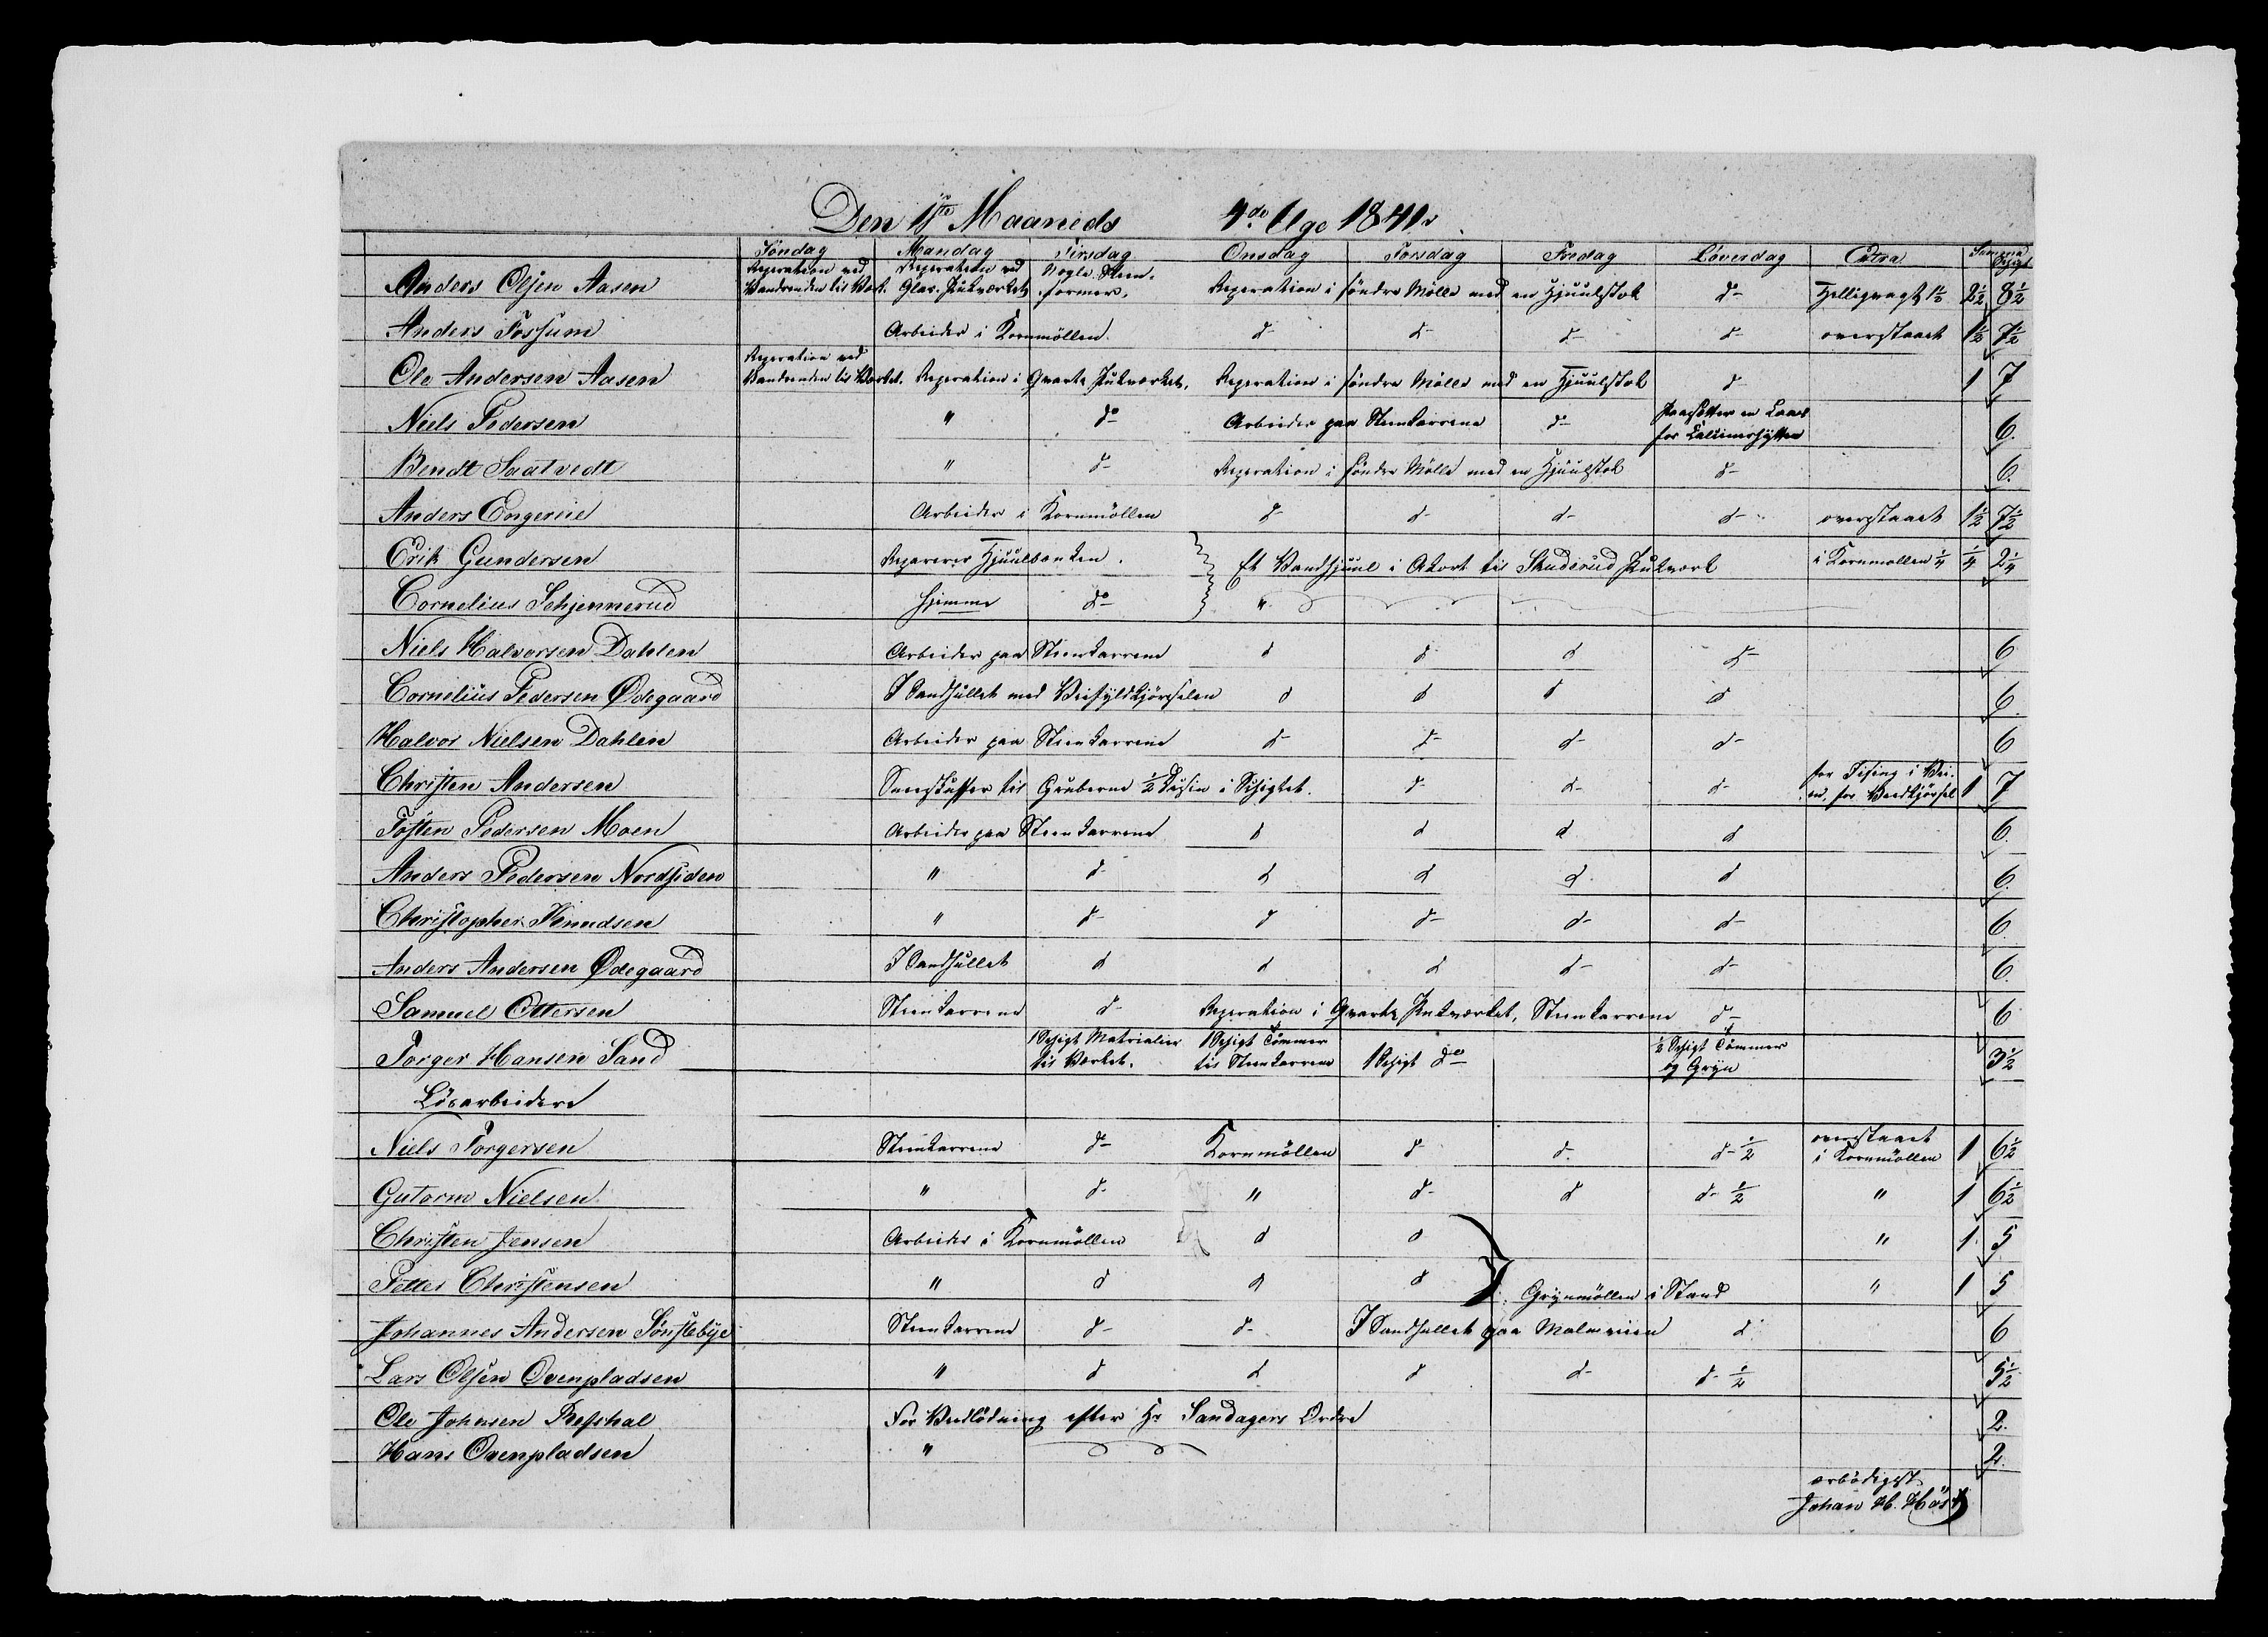 Den 1ste Maaneds 4de Uge 1841.
Søndag Mandag Tirsdag Onsdag Torsdag Fredag Løverdag Extra Summa Schigt
Anders Olsen Aasen Reperation ved Vandrenden til Værk. Reperation ved Glas. Pukværket Nogle Steen-former. Reperation i søndre Mölle med en Hjuulstok d- Helligvagt 1½ 2½ 8½
Anders Fossum Arbeider i Kornmöllen. d- d- d- d- overstaaet 1½ 7½
Ole Andersen Aasen Reperation ved Vandrenden til Værket. Reperation i Qvarts Pukværket. Reperation i söndre Mölle med en Hjuulstok d- 1 7
Niels Pedersen " do Arbeider paa Steenkarrene d- paasætter en Laas for 6.
Bendt Saatvedt " d- Reperation i söndre Mölle med en Hjuulstok d- 6.
Anders Engereie Arbeider i Kornmöllen d- d- d- d- overstaaet 1½ 7½
Erik Gundersen Reparerer Hjuulbanken. Et Vandhjuul i Akort til Skuderud Pukværk i Kornmøllen ¼ ¼ 2¼
Cornelius Schjennerud hjemme do "
Niels Halvorsen Dahlen Arbeider paa Steenkarrene d d- d d- 6
Cornelius Pedersen Ødegaard I Sandhullet med Veifyldkjørselen d d d d 6.
Halvor Nielsen Dahlen Arbeider paa Steenkarrene d- d- d- d- 6
Christen Andersen Sneeskuffer til Gruberne ½ Dusin i Schigtet. d- d- d- for Iising i Vei-en for Vedkjørsel 1 7
Tosten Pedersen Moen Arbeider paa Steenkarrene d d d d 6.
Anders Pedersen Nordsiden " d- d d d. d 6.
Christopher Knudsen " d- d d- d- d- 6.
Anders Andersen Ødegaard I Sandhullet d d d d- d- 6.
Samuel Ottersen Steenkarrene d- Reperation i Qvarts Pukværket, Steenkarrene d- 6
Torger Hansen Sand 1 Schigt Matrialier til Værket. 1 Schigt Tømmer til Steenkarrene 1 Schigt do ½ Schigt Tømmer og Gryn 3½
Lösarbeidere
Niels Torgersen Steenkarrene d- Kornmöllen d- d. d- ½ overstaaet i Kornmöllen 1 6½
Gutorm Nielsen " d- " d- d d- ½ " 1 6½
Christen Jensen Arbeider i Kornmöllen d d " 1. 5
Petter Christensen " d d d Grynmöllen i Stand " 1 5
Johannes Andersen Sønstebye Steenkarrene d- d- I Sandhullet paa Malmveien d 6
Lars Olsen Ovenpladsen " d d d d- d- ½ 5½
Ole Johnsen Refshal For Vedlödning efter Hr Sandagers Ordre 2.
Hans Ovenpladsen " 2.
ærbödigst
Johan H. Höst